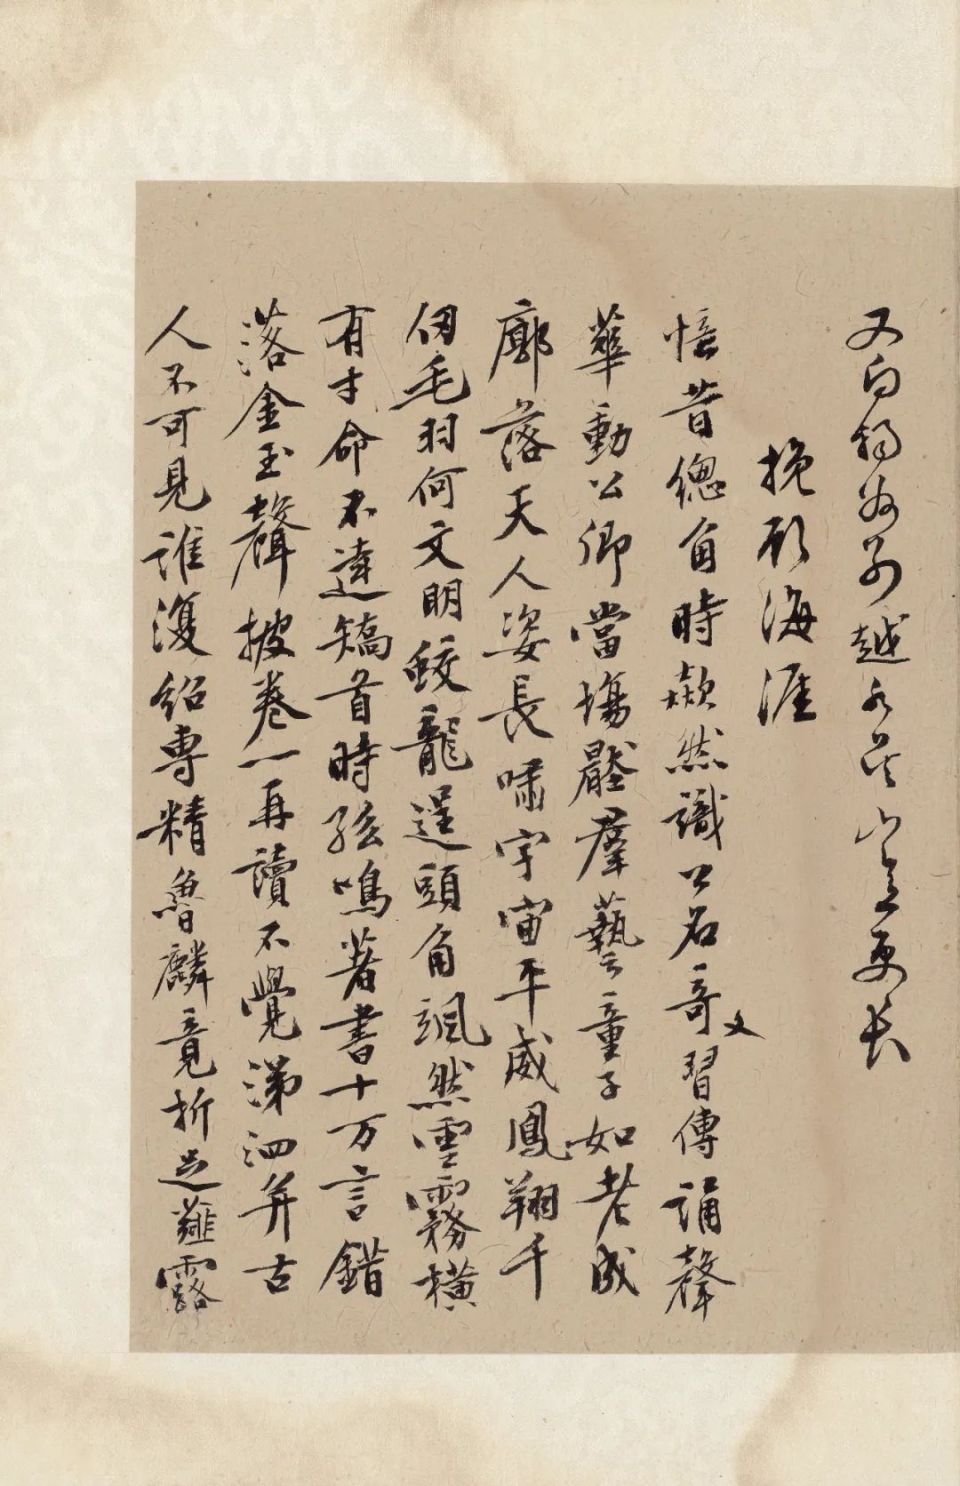 又白
越
挽顧海涯
憶昔總角時歘然識公名奇文習傳誦聲
華動公卿當場壓羣藝童子如老成
廓落天人姿長嘯宇宙平威鳳翔千
仞毛羽何文明蛟龍逞頭角颯然雲霧橫
有才命不達矯首時孤鳴著書十万言錯
落金玉聲披卷一再讀不覺涕泗并古
人不可見誰復紹專精魯麟竟折足薤露